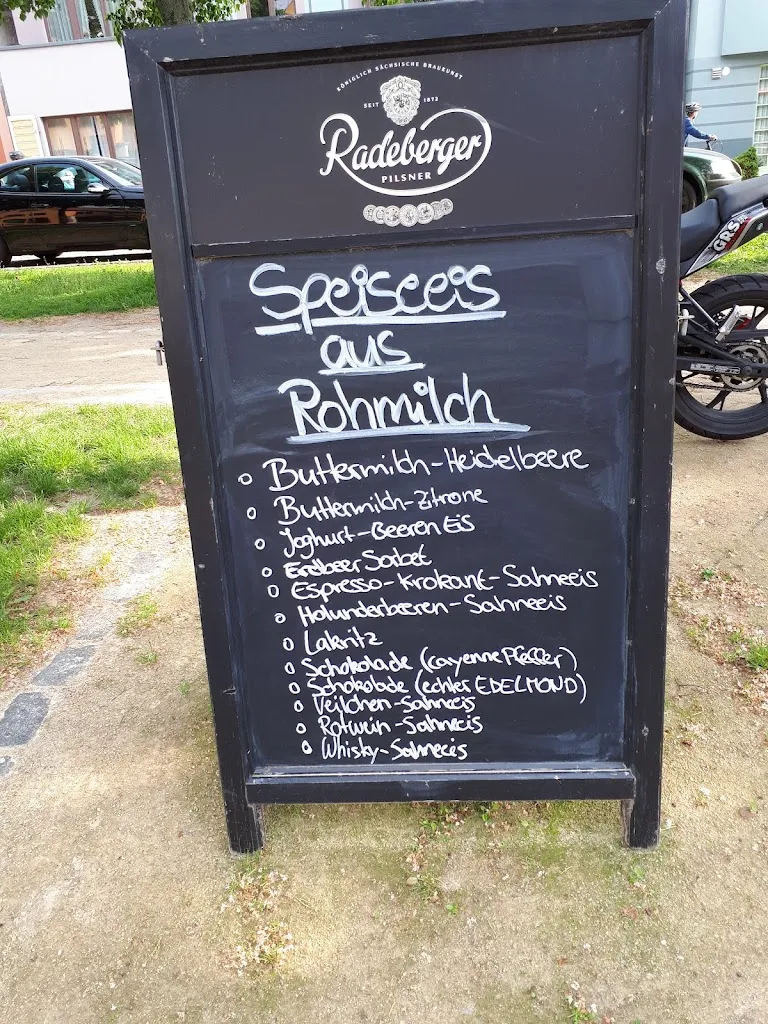 KÖNIGLICH SÄCHSISCHE BRAUKUNST
SEIT 1872
Radeberger
PILSNER
Speiseeis
aus
Rohmilch
o Buttermilch-Heidelbeere
o Buttermilch-Zitrone
o Joghurt-Beeren Eis
o Erdbeer Sorbet
o Espresso-Krokant-Sahneeis
o Holunderbeeren-Sahneeis
o Lakritz
o Schokolade (cayenne Pfeffer)
o Schokolade (echter EDELMOND)
o Veilchen-Sahneeis
o Rotwein-Sahneeis
o Whisky-Sahneeis
GRS